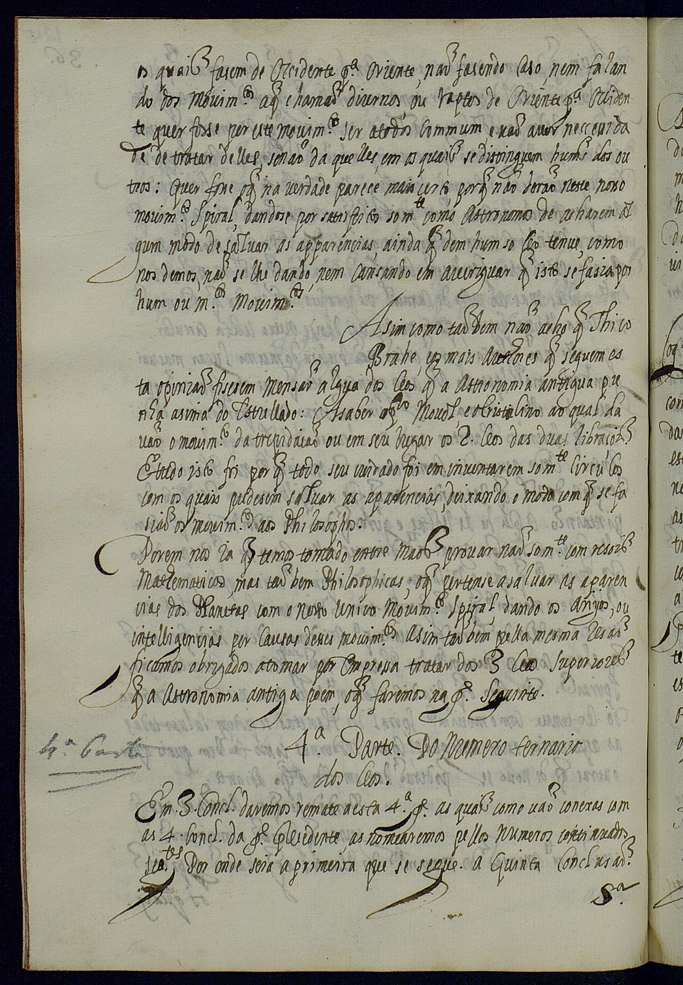 os quais fasem de Occidente p.ª Oriente, naõ fasendo caso, nem falan
do dos Movim.tos aq̃ chamaõ diversos, ou raptos de Oriente p.ª Occiden
te quer fosse por este movim.to ser atodos commum e naõ aver neccecida
de de tratar delles, senaõ da quelles, em os quais se distinguem huns dos ou
tros: Quer fosse q̃ na verdade parece mais certo porq̃ naõ deraõ neste nosso
movim.to Spiral, dandose por satisfeitos som.te como Astronomos de acharem al
gum modo de saluar as apparencias ainda q̃ dem hum so Ceo tenue, como
nos demos, naõ se lhe dando, nem cansando em averiguar q̃ isto se fasia por
hum ou m.tos Movim.tos
Asim como taõ bem naõ acho q̃ Thico
Brahe, e os mais Authores q̃ seguem es
ta opiniaõ fisesem mensaõ algũa dos Ceos q̃ a Astronomia antigua pu
nha asima do Estrellado: Asaber o pr.o Mouel, e o Cristalino ao qual da
vaõ o movim.to da trepidaçaõ ou em seu lugar os 2. Ceos das duas libraçoẽs
E tudo isto foi por q̃ todo seu cuidado foi em inventarem som.te Circulos
com os quais pudesem saluar as aparencias, deixando o modo com q̃ se fa
siaõ os movim.tos aos Philosophos.
Porem nos ia q̃ temos tomado entre maõs provar naõ som.te com resoẽs
Mathematicas, mas taõ bem Philosophicas, o q̃ pertense a saluar as aparen
cias dos Planetas com o nosso unico Movim.to Spiral dando os Anjos, ou
intelligencias por Causas destes movim.tos Asim taõ bem, pella mesma resaõ
ficamos obrigados a tomar por Empresa tratar dos 3 Ceos Superiores
q̃ a Astronomia antiga poem o q̃ faremos na p. Seguinte.
4.ª Parte. Do Numero ternario
dos Ceos.
4.ª Parte
Em 3 Concl. daremos remate a esta 4.ª p. as quais como vaõ conexas com
as 4 Concl. da p. Precidente as nomearemos pellos Numeros continuados
Por onde será a primeira que se segue. a Quinta Conclusaõ
5.ª